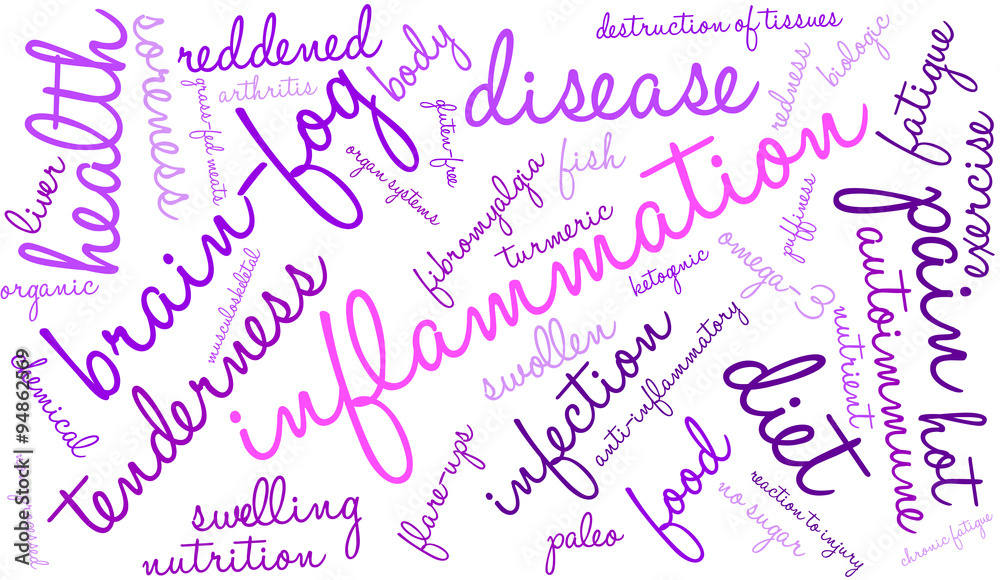 health
soreness
reddened
arthritis
grass-fed meats
body
gluten-free
organ systems
disease
destruction of tissues
redness
biologic
fatigue
exercise
liver
organic
brain-fog
musculoskeletal
tenderness
chemical
inflammation
fibromyalgia
fish
turmeric
ketognic
omega-3
puffiness
pain
autoimmune
nutrient
hot
swollen
infection
anti-inflammatory
diet
food
no sugar
reaction to injury
chronic fatigue
flare-ups
paleo
swelling
nutrition
Adobe Stock | #94862569
Adobe Stock